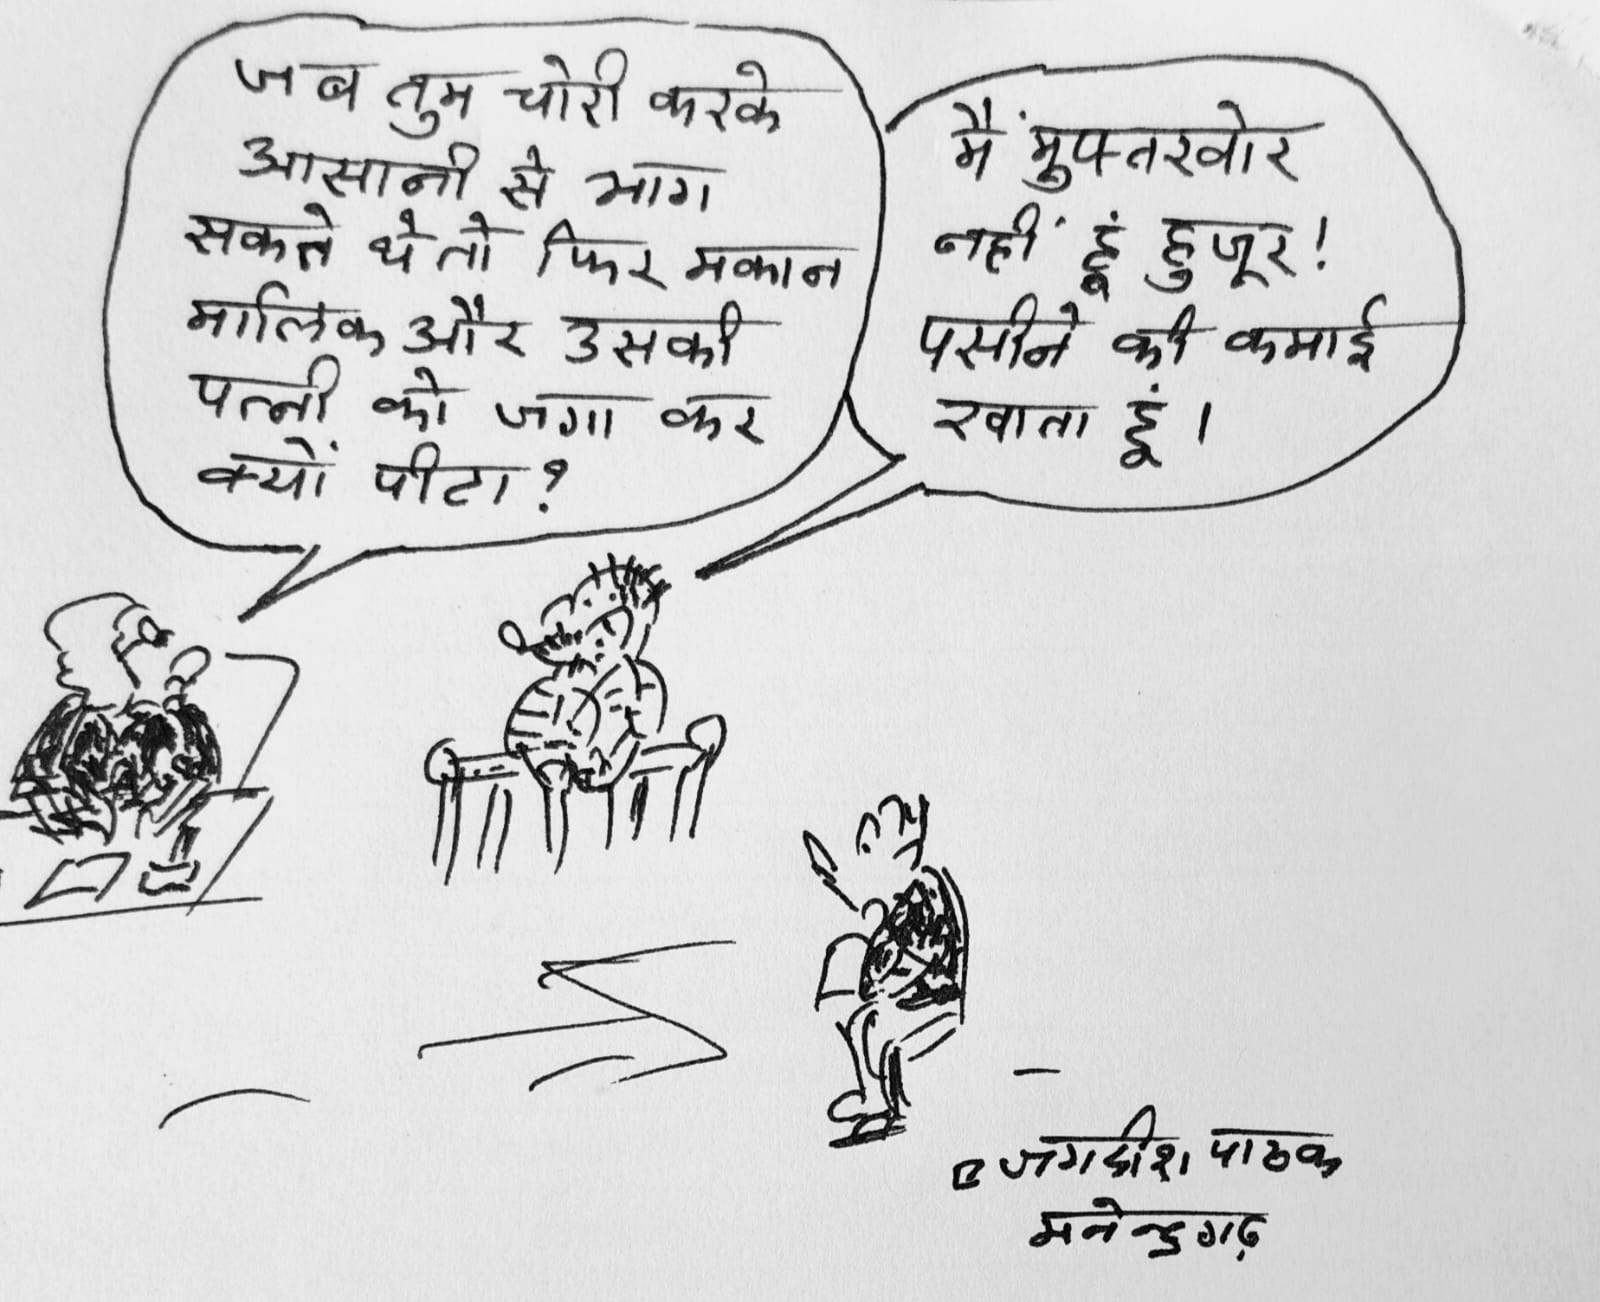 जब तुम चोरी करके
आसानी से भाग
सकते थे तो फिर मकान
मालिक और उसकी
पत्नी को जगा कर
क्यों पीटा?
मैं मुफ्तखोर
नहीं हूं हुजूर!
पसीने की कमाई
खाता हूं।
जगदीश पाठक
मनेन्द्रगढ़